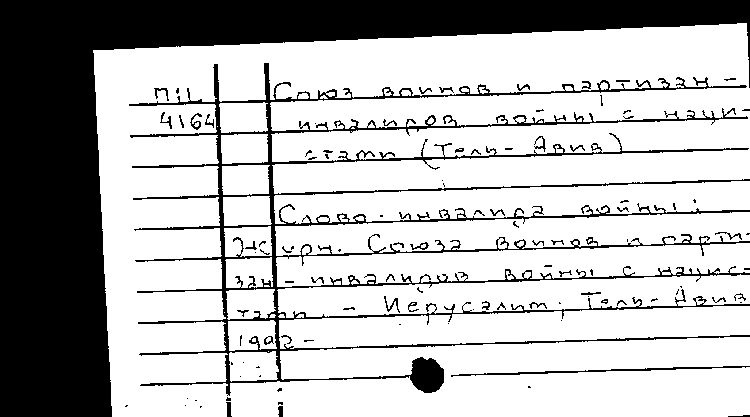 П:L Союз воинов и партизан-
4164 инвалидов войны с наци-
стами (Тель-Авив)
Слово инвалида войны:
Журн. Союза воинов и парти-
зан-инвалидов войны с нацис-
тами. - Иерусалим; Тель-Авив
1992-